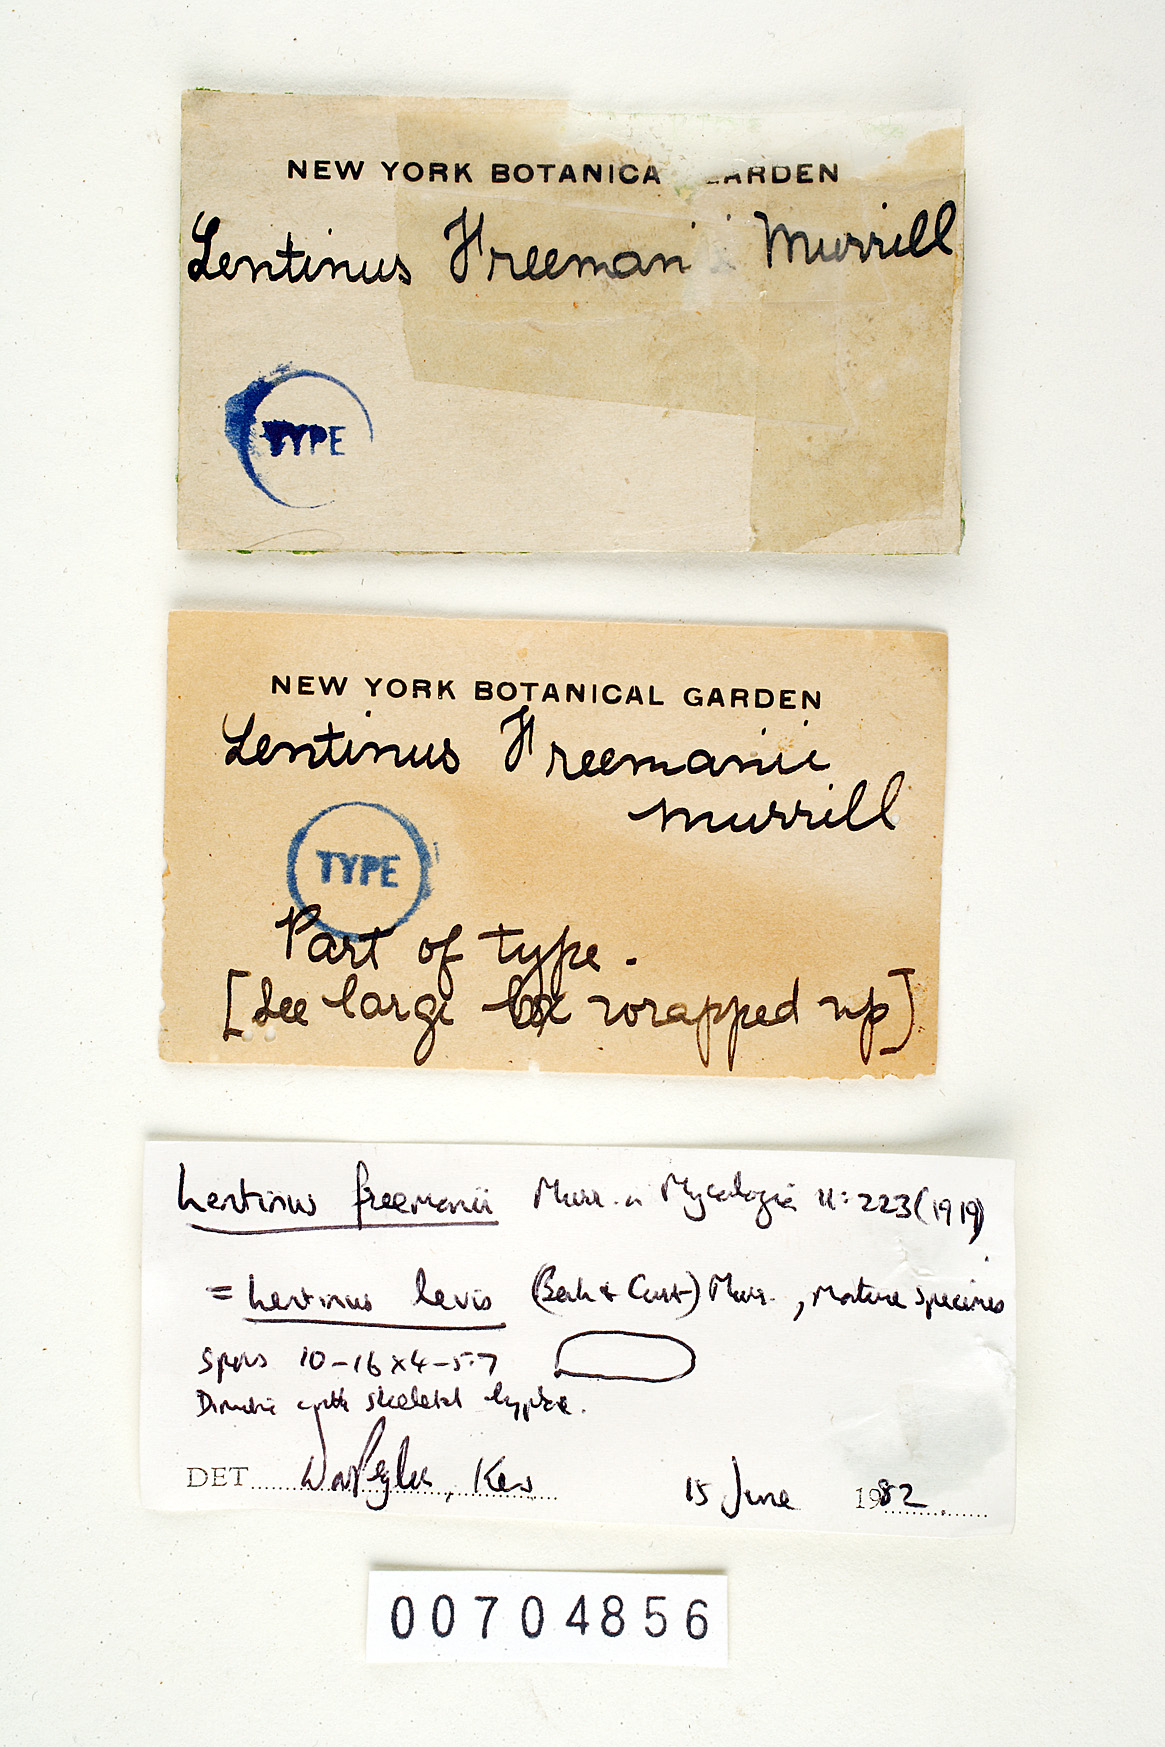 NEW YORK BOTANICA ARDEN
Lentinus Freeman i Murrill
TYPE
NEW YORK BOTANICAL GARDEN
Lentinus Freemanii
Murrill
TYPE
Part of type.
[See large box wrapped up]
Lentinus freemanii Murr. in Mycologia 11:223 (1919)
= Lentinus levis (Berk & Curt) Murr., mature specimens
Spores 10-16 x 4-5.7
Dimitic with skeletal hyphae.
DET. Kew 15 June 1982
00704856